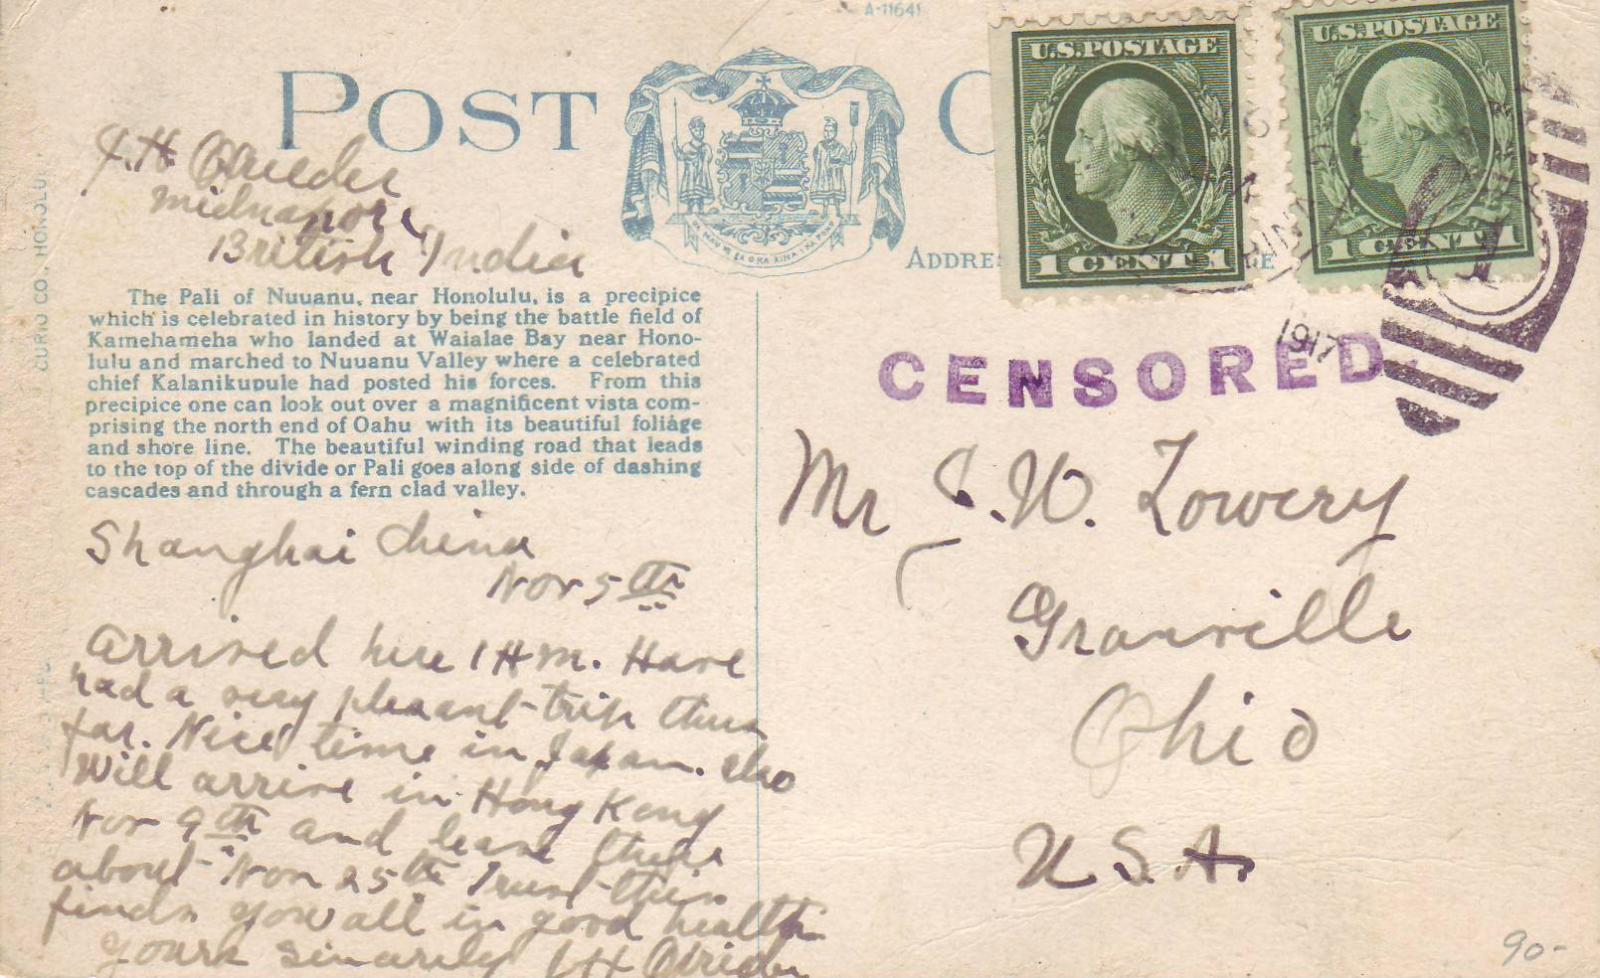 A-11641
POST C
J.H. Oxrieder
Midnapore
British India
ADDRE
U.S.POSTAGE
1 CENT 1
U.S.POSTAGE
1 CENT 1
1917
CENSORED
The Pali of Nuuanu, near Honolulu, is a precipice
which is celebrated in history by being the battle field of
Kamehameha who landed at Waialae Bay near Hono-
lulu and marched to Nuuanu Valley where a celebrated
chief Kalanikupule had posted his forces. From this
precipice one can look out over a magnificent vista com-
prising the north end of Oahu with its beautiful foliage
and shore line. The beautiful winding road that leads
to the top of the divide or Pali goes along side of dashing
cascades and through a fern clad valley.
Shanghai China
Nov 5th
Arrived here 1 H m. Have
had a very pleasant trip thus
far. Nice time in Japan. also
Will arrive in Hong Kong
Nov 9th and leave there
about Nov 25th Trust this
finds you all in good health
Yours sincerely J H Oxrieder
Mr S.W. Lowery
Granville
Ohio
U.S.A.
CURIO CO., HONOLU
90-